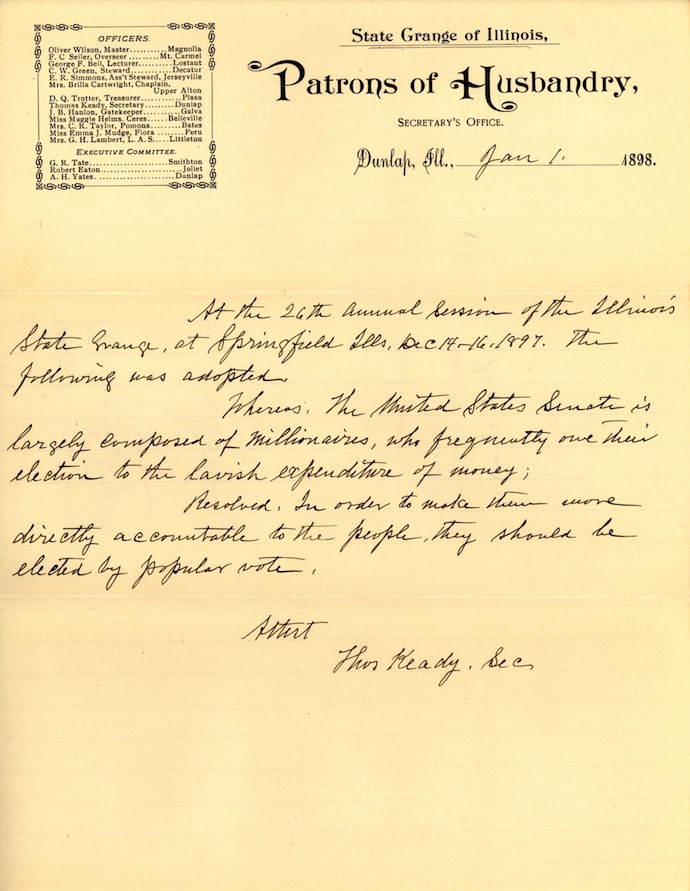 OFFICERS.
Oliver Wilson, Master...........Magnolia
F. C. Seiler, Overseer .........Mt. Carmel
George F. Bell, Lecturer.........Lostant
C. W. Green, Steward............Decatur
E. R. Simmons, Ass't Steward, Jerseyville
Mrs. Brilla Cartwright, Chaplain,
Upper Alton
D. Q. Trotter, Treasurer ..........Piasa
Thomas Keady, Secretary........Dunlap
J. B. Hanlon, Gatekeeper.........Galva
Miss Maggie Helms, Ceres.....Belleville
Mrs. C. R. Taylor, Pomona.........Bates
Miss Emma J. Mudge, Flora .......Peru
Mrs. G. H. Lambert, L. A. S....Littleton
EXECUTIVE COMMITTEE.
G. R. Tate......................Smithton
Robert Eaton......................Joliet
A. H. Yates. .....................Dunlap
State Grange of Illinois,
Patrons of Husbandry,
SECRETARY'S OFFICE.
Dunlap, Ill., Jan 1. 1898.
At the 26th Annual Session of the Illinois
State Grange, at Springfield Ills, Dec 14-16, 1897. The
following was adopted.
Whereas. The United States Senate is
largely composed of Millionaires, who frequently owe their
election to the lavish expenditure of money;
Resolved. In order to make them more
directly accountable to the people, they should be
elected by popular vote.
Attest
Thos Keady. Sec